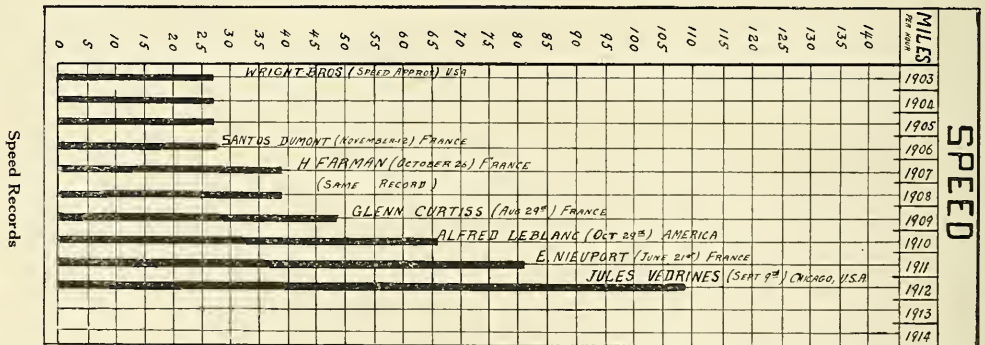 Speed Records
SPEED
MILES PER HOUR
0 5 10 15 20 25 30 35 40 45 50 55 60 65 70 75 80 85 90 95 100 105 110 115 120 125 130 135 140
WRIGHT BROS (SPEED APPROX) USA 1903
1904
1905
SANTOS DUMONT (NOVEMBER 12) FRANCE 1906
H FARMAN (OCTOBER 26) FRANCE 1907
(SAME RECORD) 1908
GLENN CURTISS (AUG 29th) FRANCE 1909
ALFRED LEBLANC (OCT 29th) AMERICA 1910
E. NIEUPORT (JUNE 21st) FRANCE 1911
JULES VEDRINES (SEPT 9th) CHICAGO, U.S.A. 1912
1913
1914